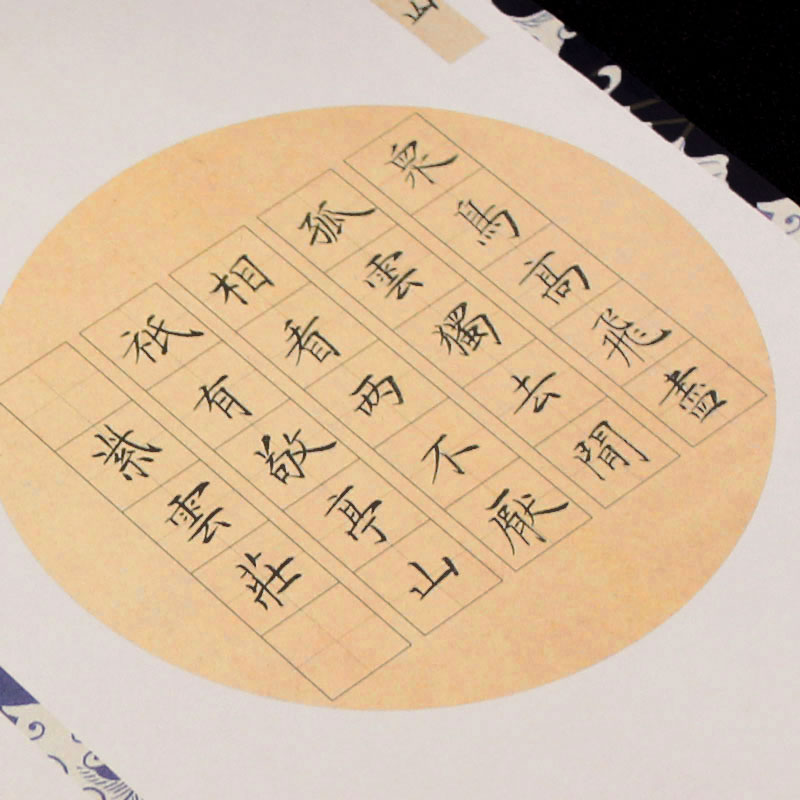 衆鳥高飛盡
孤雲獨去閒
相看两不厭
祇有敬亭山
紫雲莊
山